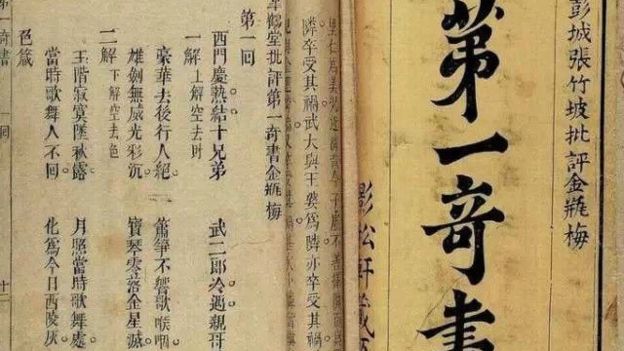 彭城張竹坡批評金瓶梅
第一奇書
影松軒藏
隣卒受其禍武大與王婆為隣亦卒受其禍
鶴堂批評第一奇書金瓶梅
第一回
西門慶熱結十兄弟 武二郎冷遇親哥
一解 上解空去財
豪華去後行人絕 簫箏不響歌喉咽
雄劍無威光彩沉 寶琴零落金星滅
二解 下解空去色
玉階寂寞墜秋露 月照當時歌舞處
當時歌舞人不回 化為今日西陵灰
色箴
第一奇書 一回 十二